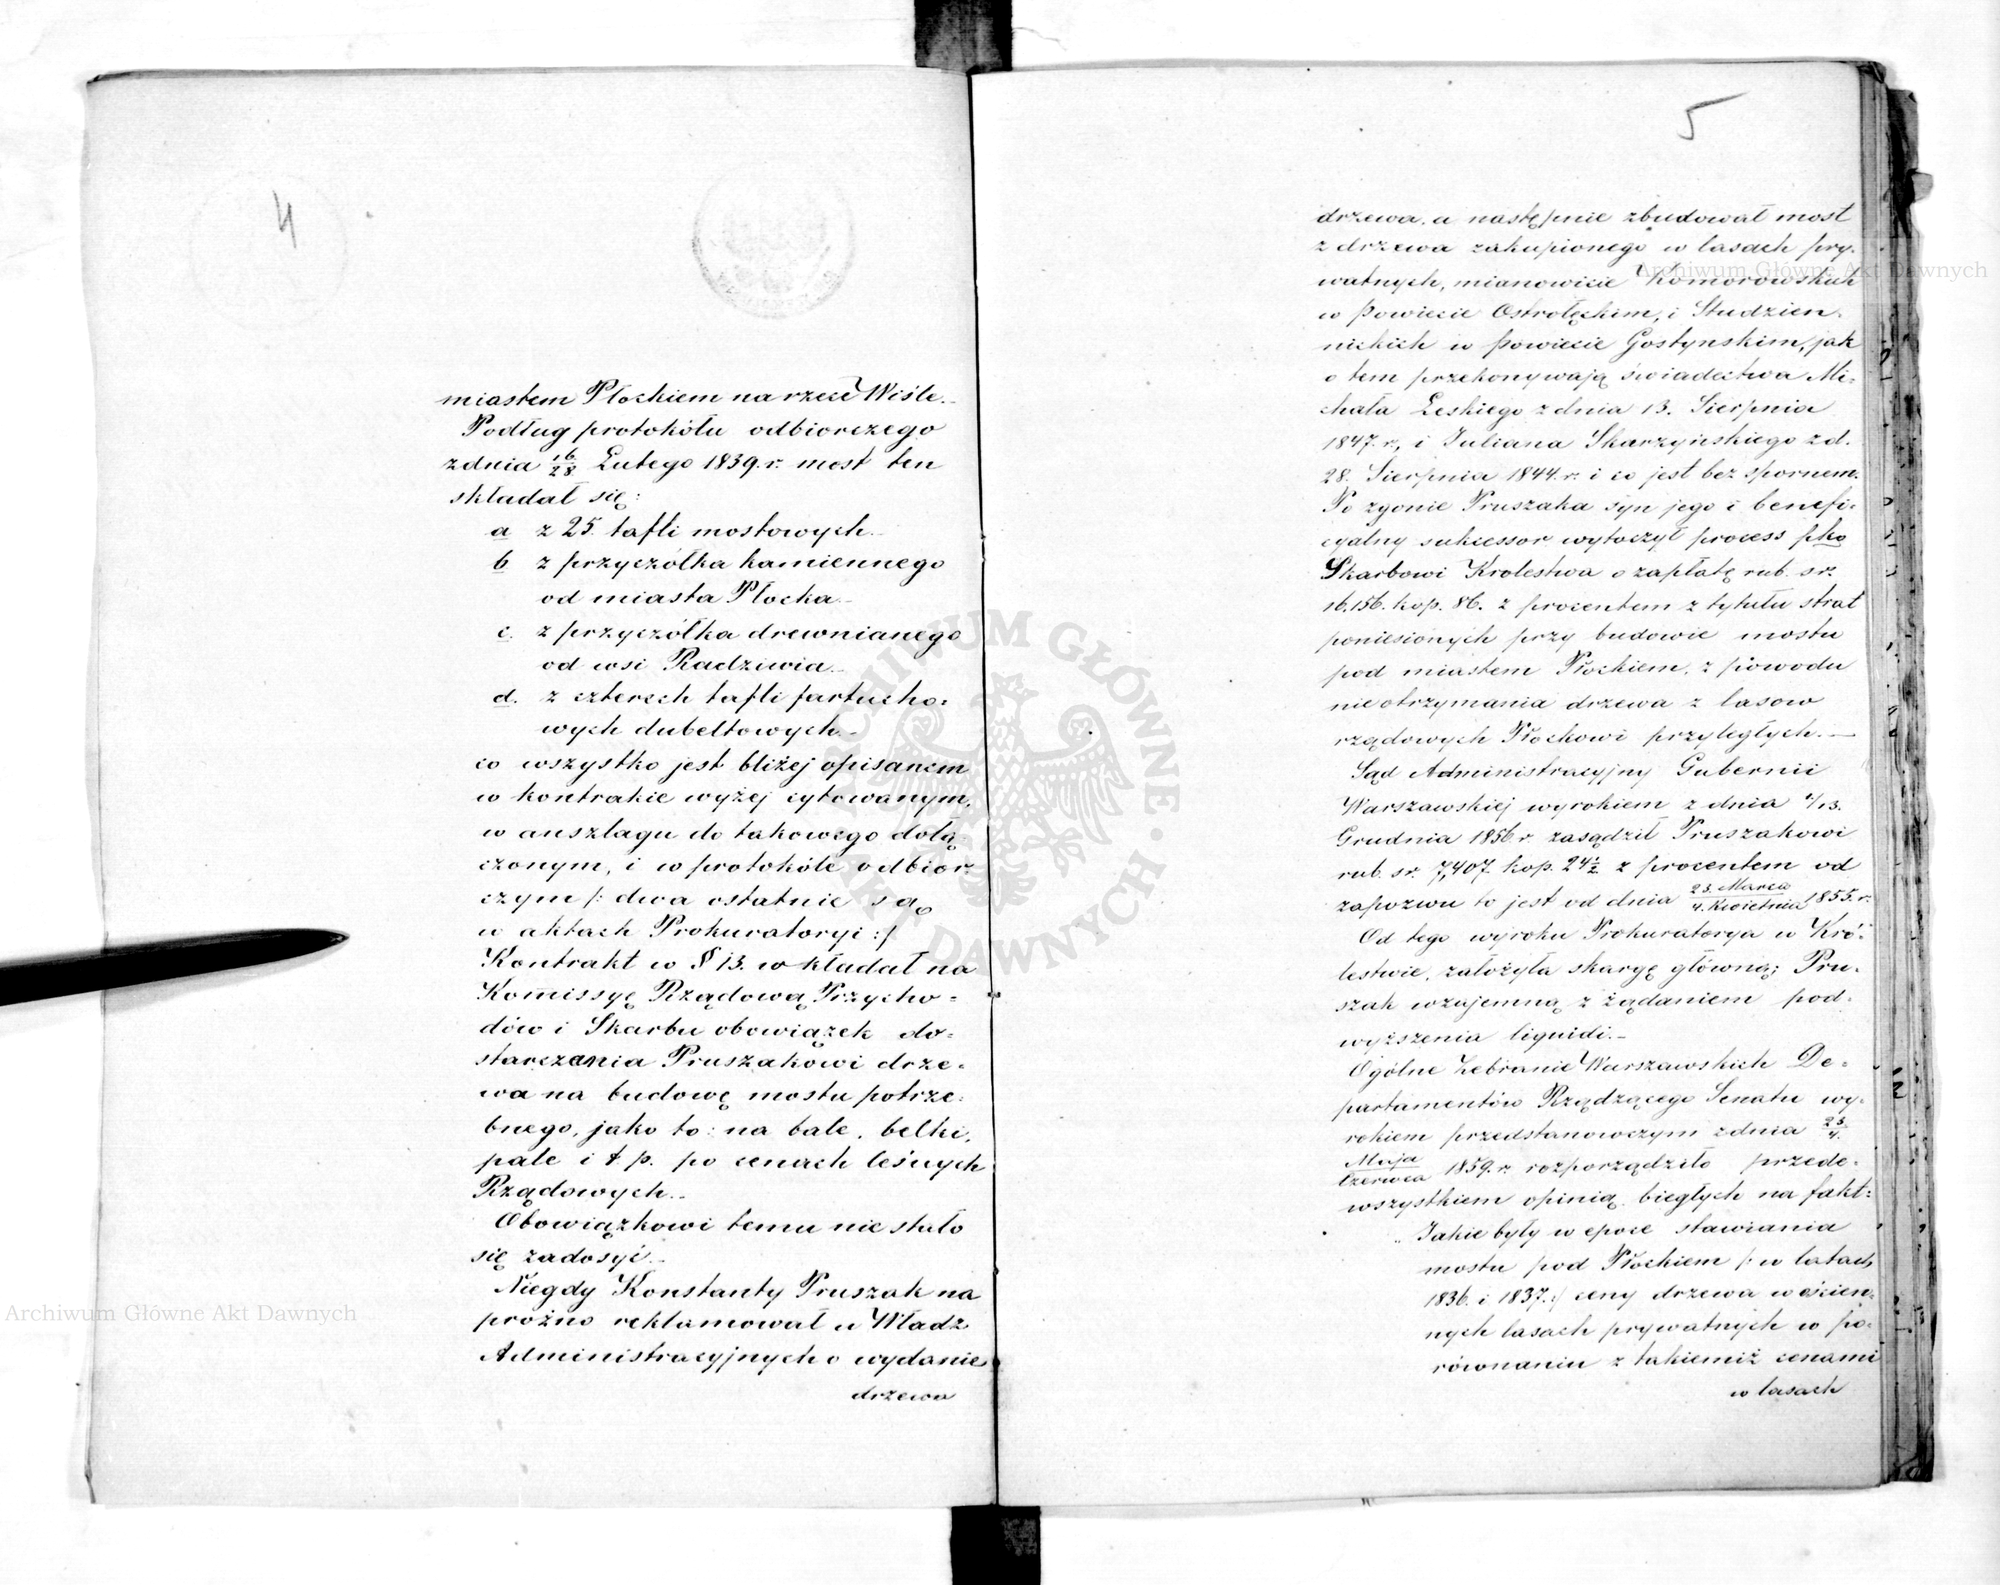 4
miastem Płockiem na rzece Wiśle.
Podług protokółu odbiorczego
z dnia 16/28 Lutego 1839. r. most ten
składał się:
a z 25. tafli mostowych.
b z przyczółka kamiennego
od miasta Płocka
c. z przyczółka drewnianego
od wsi Radziwia
d. z czterech tafli fartucho=
wych dubeltowych.
co wszystko jest bliżej opisanem
w kontrakie wyżej cytowanym,
w anszlagu do takowego dołą
czonym, i w protokóle odbior
czym /: dwa ostatnie są
w aktach Prokuratoryi :/
Kontrakt w § 13. wkładał na
Kommissyę Rządową Przycho=
dów i Skarbu obowiązek do=
starczania Pruszakowi drze=
wa na budowę mostu potrze=
bnego, jako to: na bale, belki,
pale i t. p. po cenach leśnych
Rządowych.
Obowiązkowi temu nie stało
się zadosyć.
Niegdy Konstanty Pruszak na
próżno reklamował u Władz
Administracyjnych o wydanie
drzewa
5
drzewa, a następnie zbudował most
z drzewa zakupionego w lasach pry=
watnych, mianowicie Komorowskich
w Powiecie Ostrołęckim, i Studzien=
nickich w powiecie Gostynskim, jak
o tem przekonywają świadectwa Mi=
chała Leskiego z dnia 13. Sierpnia
1847. r., i Juliana Skarzyńskiego z d.
28. Sierpnia 1844. r. i co jest bez spornem.
Po zgonie Pruszaka syn jego i benefi=
cyalny sukcessor wytoczył process pko
Skarbowi Krolestwa o zapłatę rub. sr.
16,156. kop. 86. z procentem z tytułu strat
poniesionych przy budowie mostu
pod miastem Płockiem, z powodu
nieotrzymania drzewa z lasow
rządowych Płockowi przyległych.
Sąd Administracyjny Gubernii
Warszawskiej wyrokiem z dnia 1/13.
Grudnia 1856 r. zasądził Pruszakowi
rub. sr. 7,407 kop. 24½ z procentem od
zapozwu to jest od dnia 23. Marca/4. Kwietnia 1855. r.
Od tego wyroku Prokuratorya w Kró=
lestwie, założyła skargę główną; Pru=
szak wzajemną z żądaniem pod=
wyższenia liquidi.
Ogólne Zebranie Warszawskich De=
partamentów Rządzącego Senatu wy=
rokiem przedstanowczym z dnia 23/4.
Maja/Czerwca 1859. r. rozporządziło przede=
wszystkiem opinią biegłych na fakt:
"Jakie były w epoce stawiania
mostu pod Płockiem /: w latach
1836. i 1837. :/ ceny drzewa w ościen=
nych lasach prywatnych w po=
równaniu z takiemiż cenami
w lasach
Archiwum Główne Akt Dawnych
Archiwum Główne Akt Dawnych
ARCHIWUM GŁÓWNE AKT DAWNYCH